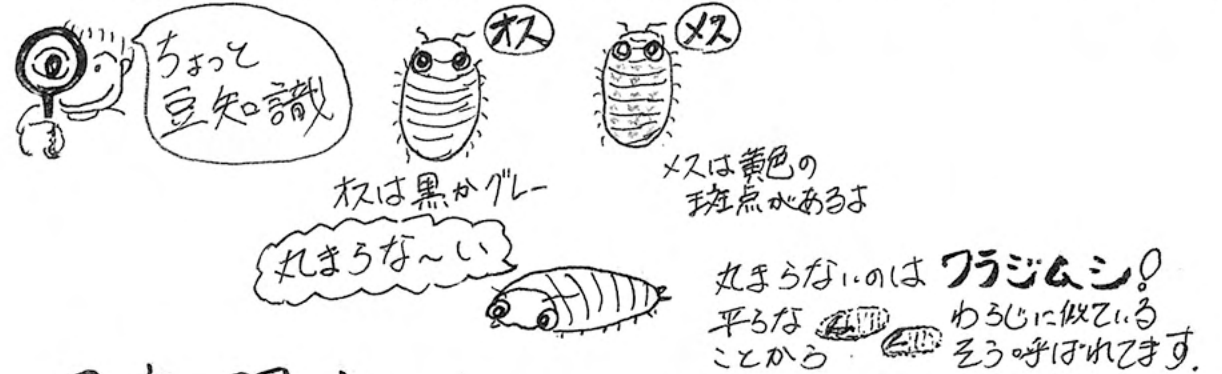 ちょっと
豆知識
オス
メス
オスは黒かグレー
メスは黄色の
斑点があるよ
丸まらな～い
丸まらないのは ワラジムシ!
平らな わらじに似ている
ことから そう呼ばれてます.